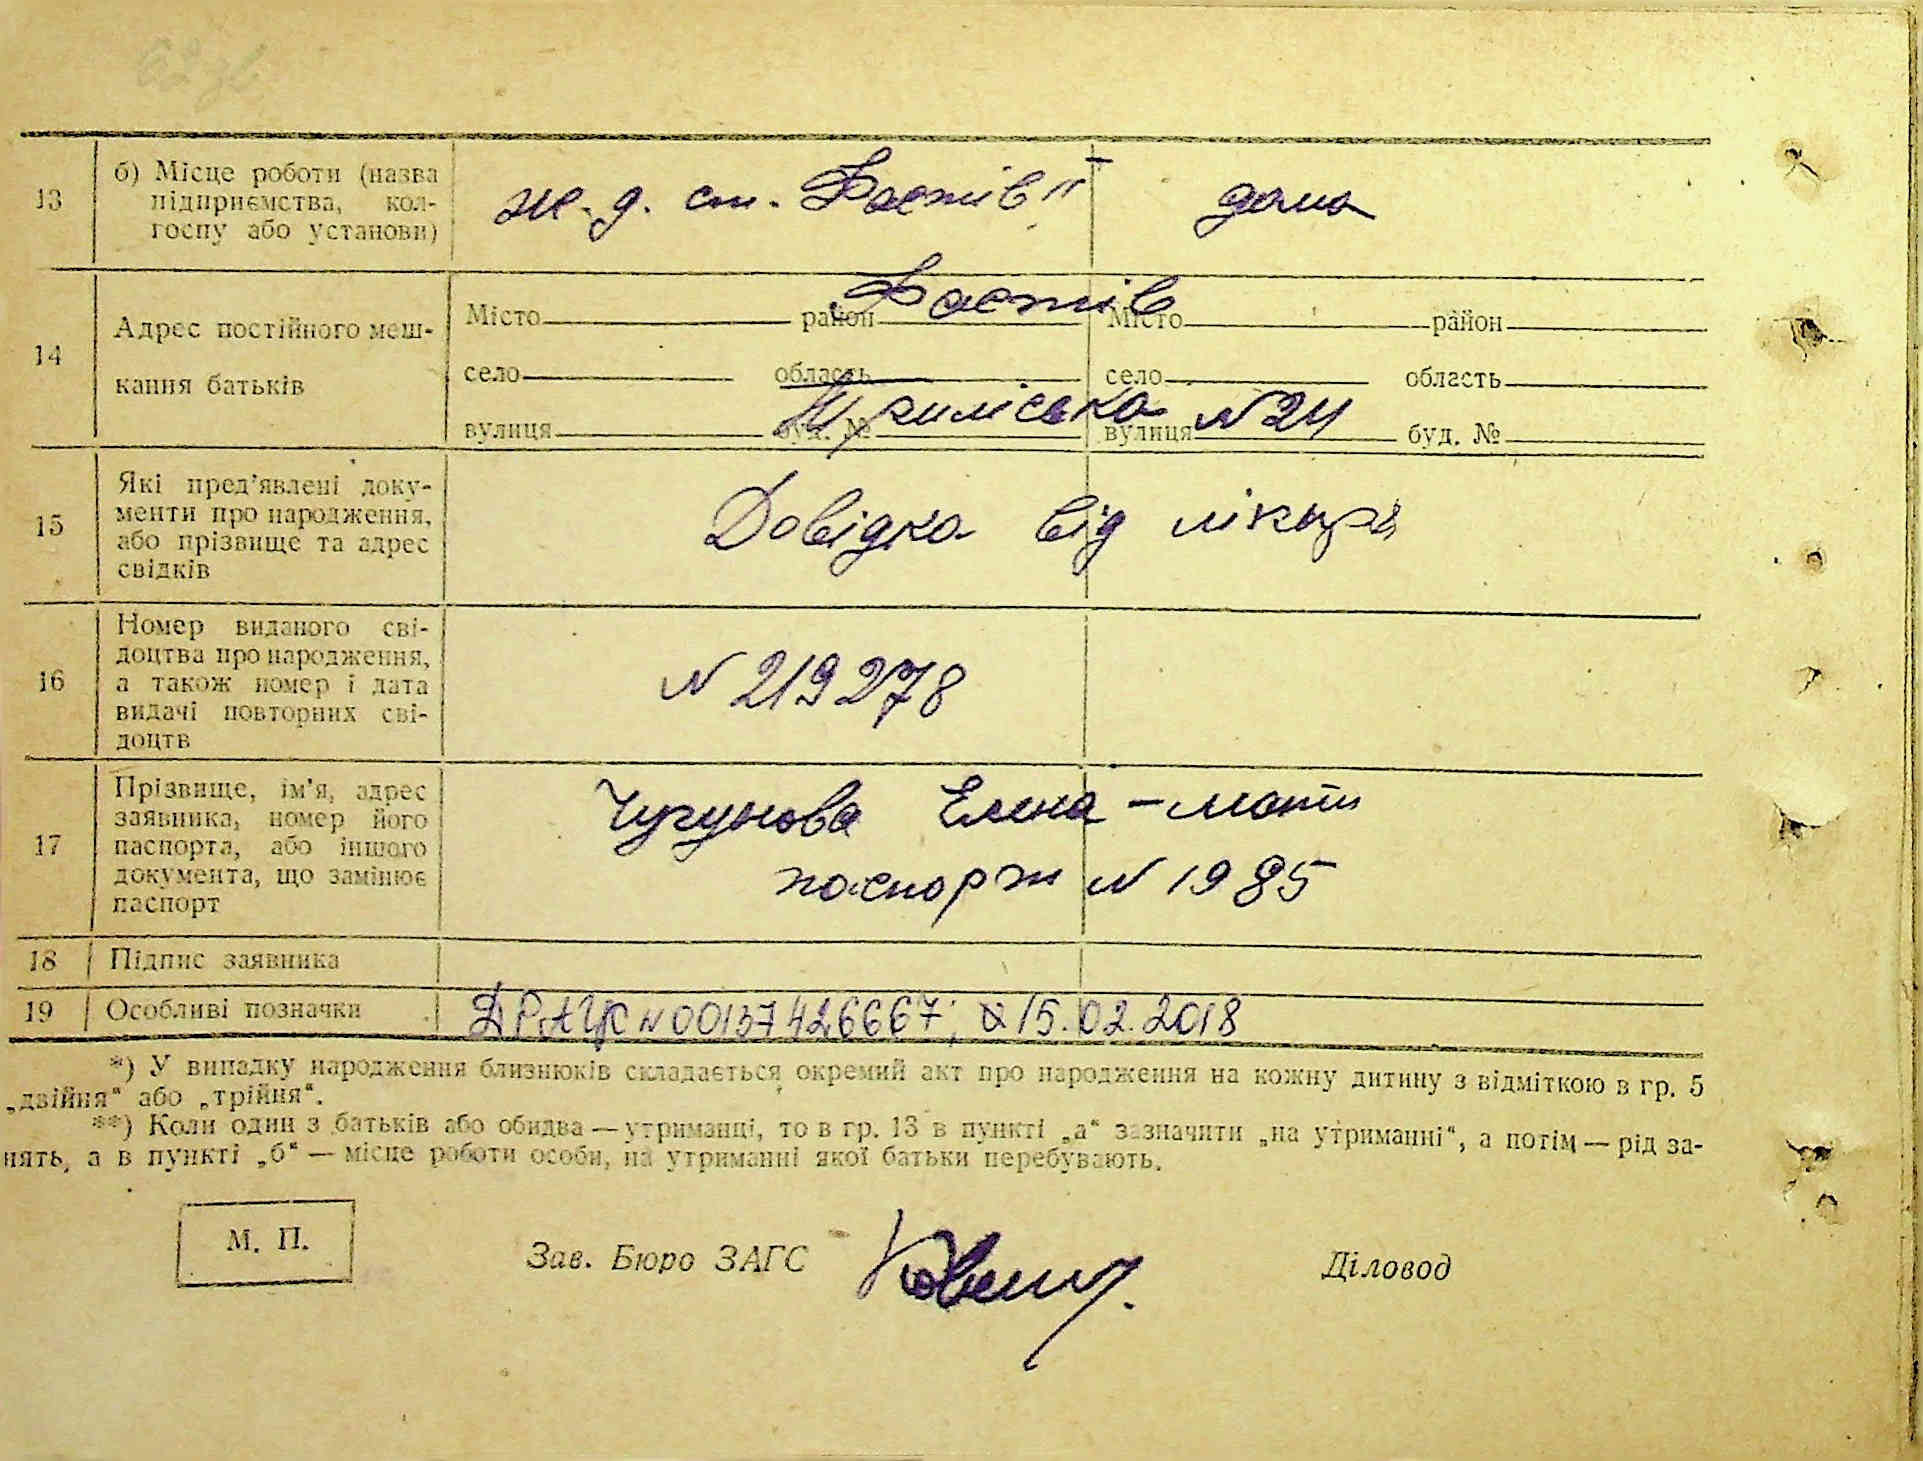 13
б) Місце роботи (назва
підприємства, кол-
госпу або установи)
ж. д. ст. Фастів II
дома
14
Адрес постійного меш-
кання батьків
Місто район Місто район
Фастів
село область село область
вулиця буд. № вулиця буд. №
№ 24
15
Які пред'явлені доку-
менти про народження,
або прізвище та адрес
свідків
Довідка від лікаря
16
Номер виданого сві-
доцтва про народження,
а також номер і дата
видачі повторних сві-
доцтв
№ 219278
17
Прізвище, ім'я, адрес
заявника, номер його
паспорта, або іншого
документа, що замінює
паспорт
Чугунова Елена – мати
паспорт № 1985
18 Підпис заявника
19 Особливі позначки
ДРАЦС № 00137426667; 15.02.2018
*) У випадку народження близнюків складається окремий акт про народження на кожну дитину з відміткою в гр. 5
„двійня“ або „трійня“.
**) Коли один з батьків або обидва — утриманці, то в гр. 13 в пункті „а“ зазначити „на утриманні“, а потім — рід за-
нять, а в пункті „б“ — місце роботи особи, на утриманні якої батьки перебувають.
М. П.
Зав. Бюро ЗАГС
Діловод